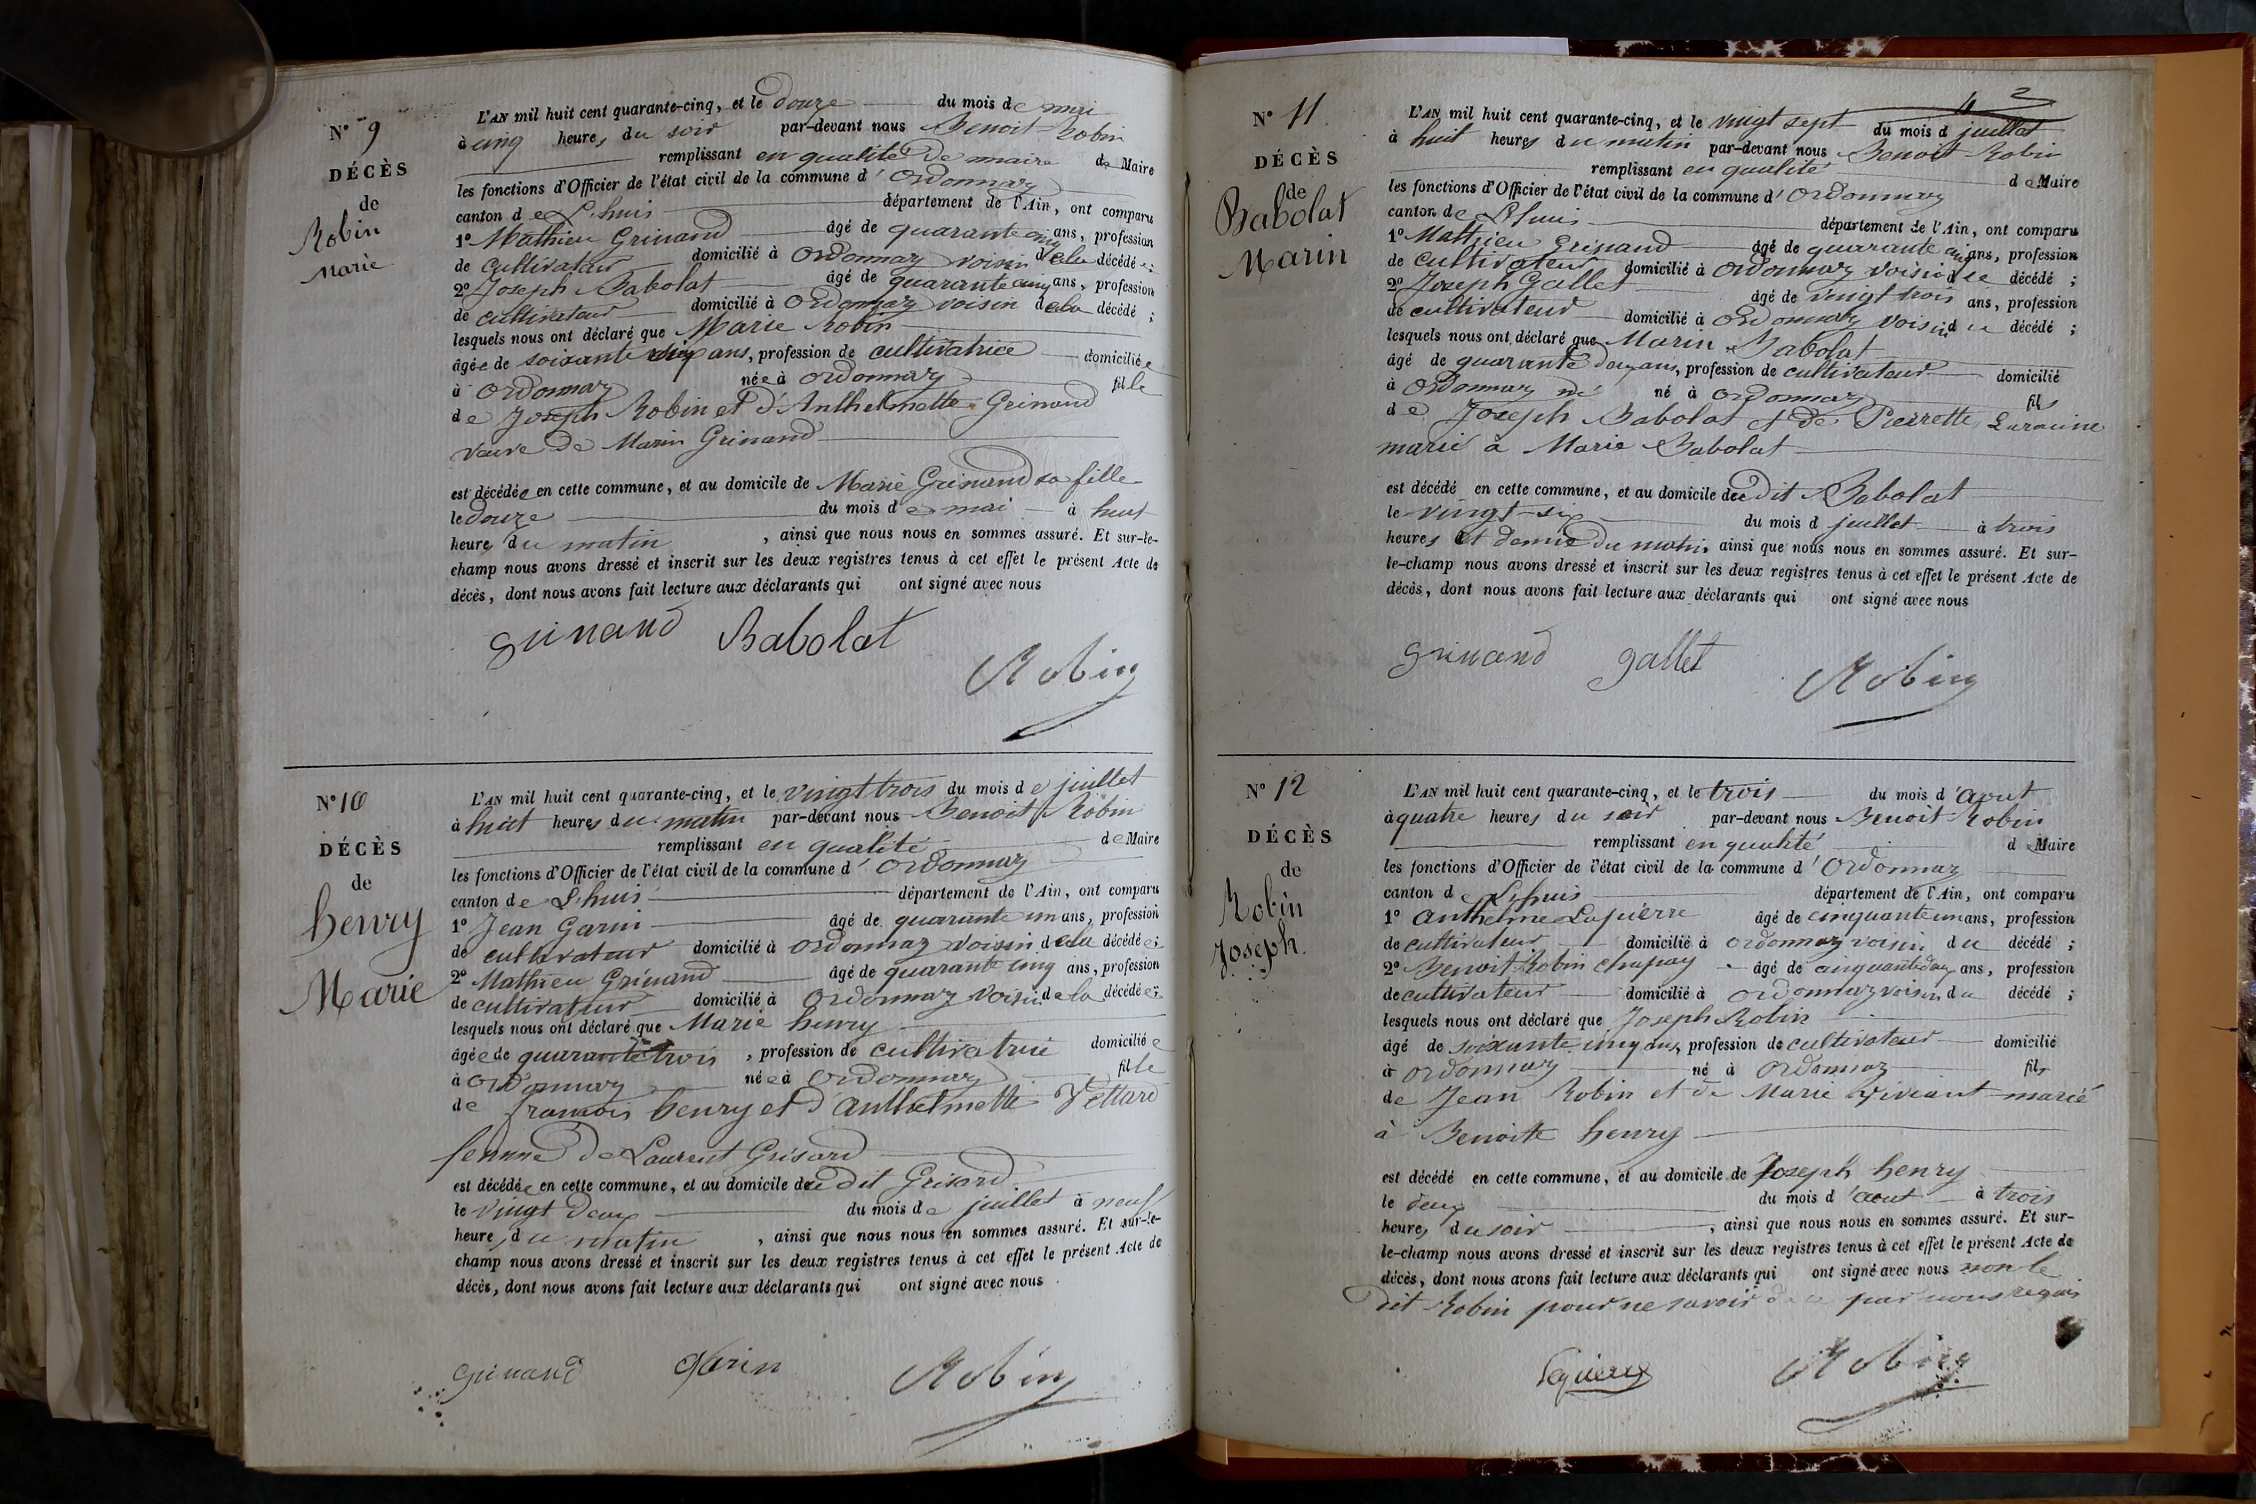 N° 9
DÉCÈS
de
Robin
Marie
L'AN mil huit cent quarante-cinq, et le douze du mois de mai
à cinq heures du soir par-devant nous Benoit Robin
remplissant en qualité de maire de Maire
les fonctions d'Officier de l'état civil de la commune d'Ordonnaz
canton de L'huis département de l'Ain, ont comparu
1° Mathieu Grinand âgé de quarante cinq ans, profession
de cultivateur domicilié à Ordonnaz voisin de la décédée;
2° Joseph Babolat âgé de quarante cinq ans, profession
de cultivateur domicilié à Ordonnaz voisin de la décédé;
lesquels nous ont déclaré que Marie Robin
âgée de soixante ans, profession de cultivatrice domiciliée
à Ordonnaz née à Ordonnaz fille
de Joseph Robin et d'Anthelmette Grinand
veuve de Marin Grinand
est décédée en cette commune, et au domicile de Marie Grinand sa fille
le douze du mois de mai à huit
heures du matin, ainsi que nous nous en sommes assuré. Et sur-le-
champ nous avons dressé et inscrit sur les deux registres tenus à cet effet le présent Acte de
décès, dont nous avons fait lecture aux déclarants qui ont signé avec nous
Grinand Babolat
Robin
N° 10
DÉCÈS
de
henry
Marie
L'AN mil huit cent quarante-cinq, et le vingt trois du mois de juillet
à huit heures du matin par-devant nous Benoit Robin
remplissant en qualité de Maire
les fonctions d'Officier de l'état civil de la commune d'Ordonnaz
canton de L'huis département de l'Ain, ont comparu
1° Jean Garin âgé de quarante un ans, profession
de cultivateur domicilié à Ordonnaz voisin de la décédée;
2° Mathieu Grinand âgé de quarante cinq ans, profession
de cultivateur domicilié à Ordonnaz voisin de la décédée;
lesquels nous ont déclaré que Marie henry
âgée de quarante trois, profession de cultivatrice domiciliée
à Ordonnaz née à Ordonnaz fille
de francois henry et d'anthelmette Vettard
femme de Laurent Grisard
est décédée en cette commune, et au domicile du dit Grisard
le vingt deux du mois de juillet à neuf
heures du matin, ainsi que nous nous en sommes assuré. Et sur-le-
champ nous avons dressé et inscrit sur les deux registres tenus à cet effet le présent Acte de
décès, dont nous avons fait lecture aux déclarants qui ont signé avec nous
Grinand Garin Robin
2
N° 11
DÉCÈS
de
Babolat
Marin
L'AN mil huit cent quarante-cinq, et le vingt sept du mois d juillet
à huit heures du matin par-devant nous Benoit Robin
remplissant en qualité de Maire
les fonctions d'Officier de l'état civil de la commune d'Ordonnaz
canton de Lhuis département de l'Ain, ont comparu
1° Mathieu Grinand âgé de quarante cinq ans, profession
de cultivateur domicilié à Ordonnaz voisin du décédé;
2° Joseph Gallet âgé de vingt trois ans, profession
de cultivateur domicilié à Ordonnaz voisin du décédé;
lesquels nous ont déclaré que Marin Babolat
âgé de quarante deux ans, profession de cultivateur domicilié
à Ordonnaz né né à Ordonnaz fils
de Joseph Babolat et de Pierrette
marié à Marie Babolat
est décédé en cette commune, et au domicile du dit Babolat
le vingt-six du mois d juillet à trois
heures et demie du matin ainsi que nous nous en sommes assuré. Et sur-
le-champ nous avons dressé et inscrit sur les deux registres tenus à cet effet le présent Acte de
décès, dont nous avons fait lecture aux déclarants qui ont signé avec nous
Grinand gallet Robin
N° 12
DÉCÈS
de
Robin
Joseph.
L'AN mil huit cent quarante-cinq, et le trois du mois d'aout
à quatre heures du soir par-devant nous Benoit Robin
remplissant en qualité de Maire
les fonctions d'Officier de l'état civil de la commune d'Ordonnaz
canton de Lhuis département de l'Ain, ont comparu
1° Anthelme Lapierre âgé de cinquante un ans, profession
de cultivateur domicilié à Ordonnaz voisin du décédé;
2° Benoit Robin chapay âgé de cinquante deux ans, profession
de cultivateur domicilié à Ordonnaz voisin du décédé;
lesquels nous ont déclaré que Joseph Robin
âgé de soixante cinq ans, profession de cultivateur domicilié
à Ordonnaz né à Ordonnaz fils
de Jean Robin et de Marie Viviant marié
à Benoite henry
est décédé en cette commune, et au domicile de Joseph henry
le deux du mois d'aout à trois
heures du soir, ainsi que nous nous en sommes assuré. Et sur-
le-champ nous avons dressé et inscrit sur les deux registres tenus à cet effet le présent Acte de
décès, dont nous avons fait lecture aux déclarants qui ont signé avec nous non le
dit Robin pour ne savoir de ce par nous requis
Robin